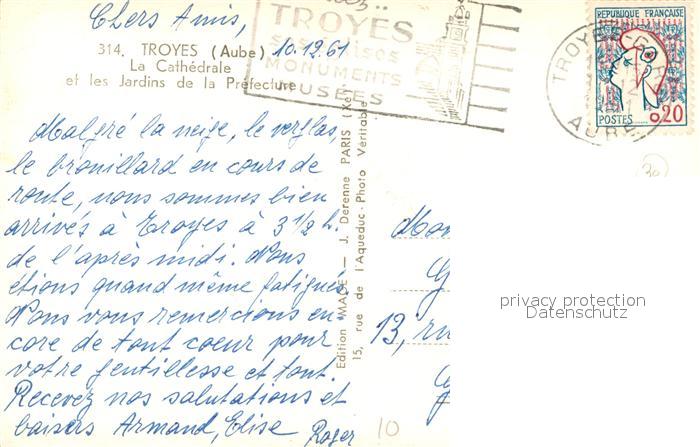 Chers Amis,
314. TROYES (Aube) 10.12.61
La Cathédrale
et les Jardins de la Préfecture
TROYES
MONUMENTS
MUSÉES
RÉPUBLIQUE FRANÇAISE
POSTES 0,20
TROYES-GARE
AUBE
30
Malgré la neige, le verglas,
le brouillard en cours de
route, nous sommes bien
arrivés à Troyes à 3 1/2 h.
de l'après midi. Nous
étions quand même fatigués
Nous vous remercions en-
core de tout coeur pour
votre gentillesse et tout.
Recevez nos salutations et
baisers Armand, Elise
Roger
Edition "MAGE" — J. Derenne PARIS
15, rue de l'Aqueduc - Photo Véritable
13, ru
10
privacy protection
Datenschutz